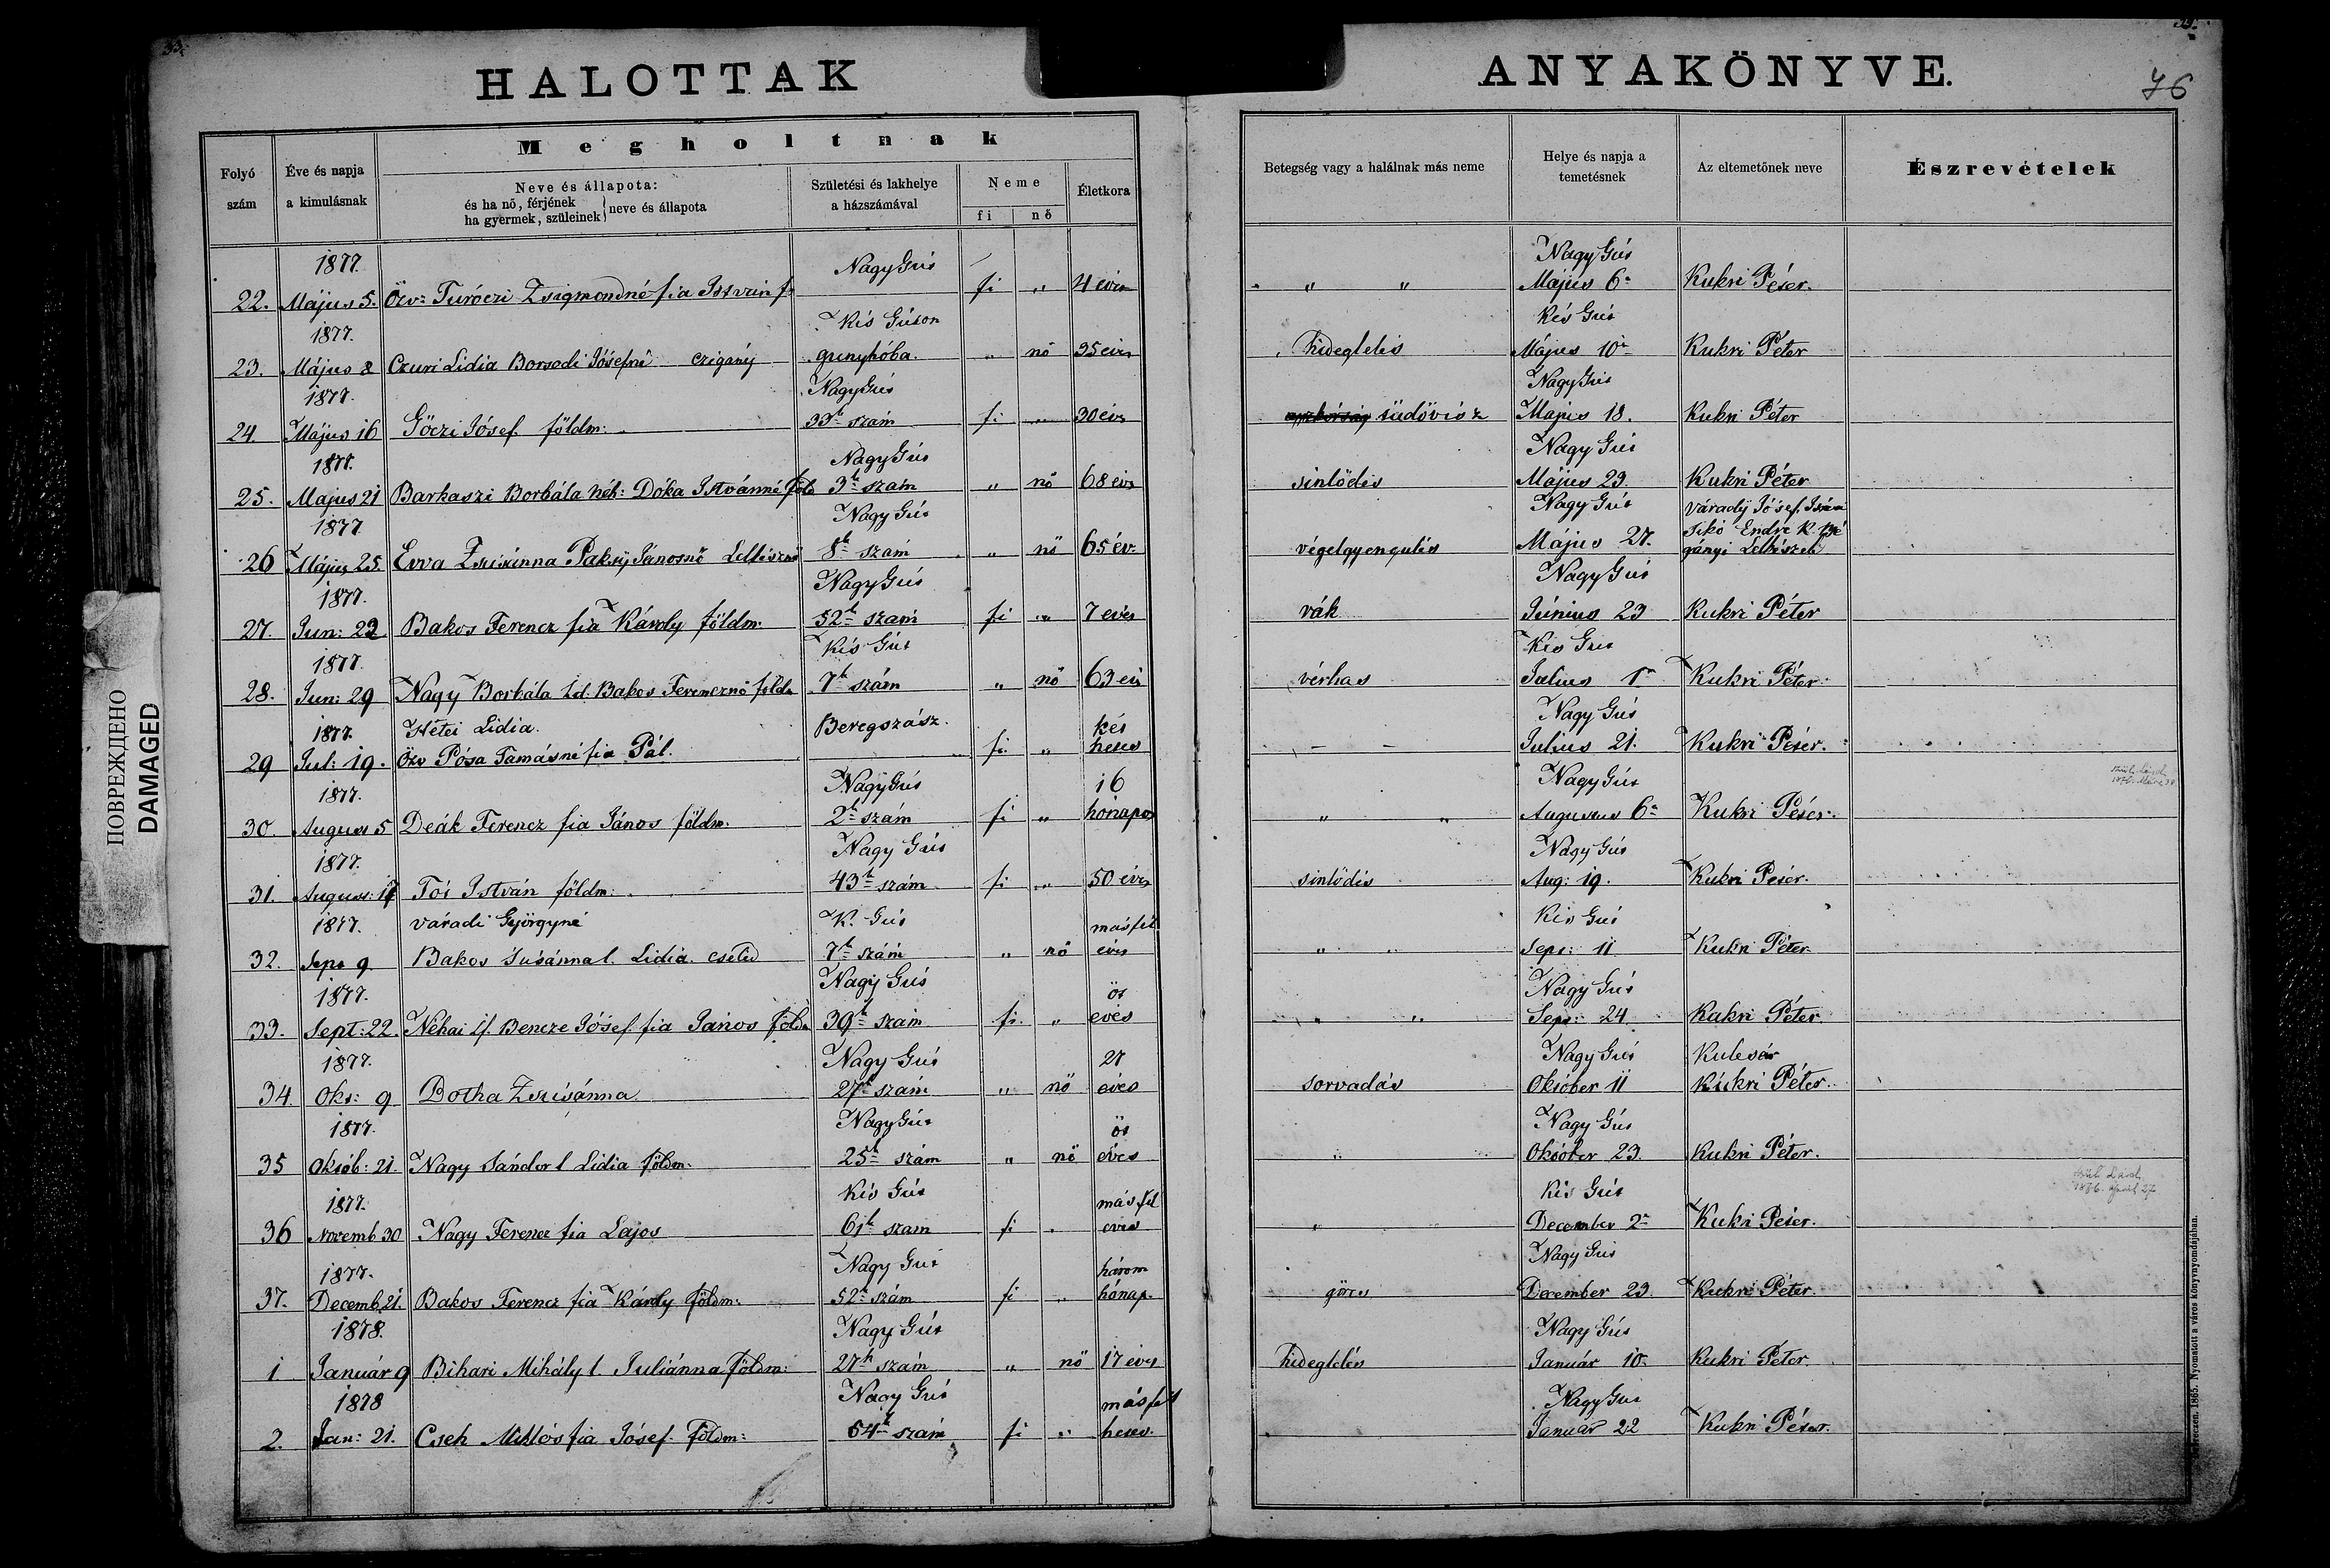 33.
HALOTTAK
Megholtnak
Folyó szám
Éve és napja a kimulásnak
Neve és állapota:
és ha nő, férjének
ha gyermek, szüleinek } neve és állapota
Születési és lakhelye a házszámával
Neme
fi nő
Életkora
1877. Nagy Gút
22. Május 5. Özv: Turóczi Zsigmondné fia István fi „ 4 éves
1877. Kis Gúton
23. Május 8 Czuri Lidia Borsodi Jósefné czigány gunyhóba. „ nő 35 éves
1877. Nagy Gút
24. Május 16 Göczi Jósef földm: 33k szám fi „ 30 éves
1877. Nagy Gút
25. Majus 21 Barkaszi Borbála néh: Dóka Istvánné föld 3k szám „ nő 68 éves
1877 Nagy Gút
26 Május 25 Evva Zsuzsánna Paksy Jánosné Lelkésznő 8k szám „ nő 65 év
1877. Nagy Gút
27. Jun: 23 Bakos Ferencz fia Károly földm. 52k szám fi „ 7 eves
1877. Kis Gút
28. Jun: 29 Nagy Borbála Id. Bakos Ferencznő földm 7k szám „ nő 63 év
1877. Hétei Lidia. Beregszász. két
29 Jul: 19. Özv Pósa Tamásné fia Pál. fi „ hetes
1877. Nagy Gút 16
30. August 5 Deák Ferencz fia János földm. 2k szám fi „ hónapos
1877. Nagy Gút
31. August: 17 Tót István földm: 43k szám fi „ 50 éves
1877. váradi Györgyné K. Gút másfél
32. Sept 9 Bakos Susánna l. Lidia. cseléd 7k szám „ nő éves
1877. Nagy Gút öt
33. Sept: 22. Néhai if. Bencze Jósef fia János földm 39k szám fi. „ eves
1877. Nagy Gút 27
34. Okt: 9 Botha Zsuzsánna 27k szám „ nő éves
1877. Nagy Gút öt
35 Októb: 21. Nagy Sándor l Lidia földm. 25k szám „ nő éves
1877. Kis Gút másfél
36 Novemb 30 Nagy Ferencz fia Lajos 61k szam fi . eves
1877. Nagy Gút három
37. Decemb. 21. Bakos Ferencz fia Károly földm. 52k szám fi „ hónap.
1878. Nagy Gút
1 Január 9 Bihari Mihály l Juliánna földm: 27k szám „ nő 17 éves
1878 Nagy Gút másfél
2. Jan: 21. Cseh Miklós fia Jósef földm: 54k szám fi „ hetes.
ПОВРЕЖДЕНО
DAMAGED
ANYAKÖNYVE.
76
Betegség vagy a halálnak más neme
Helye és napja a temetésnek
Az eltemetőnek neve
Észrevételek
Nagy Gút
„ „ Május 6n Kukri Péter.
Kis Gút
hideglelés Május 10n Kukri Péter
Nagy Gút
tüdővész Május 18. Kukri Péter
Nagy Gút
sinlődés Május 23. Kukri Péter
Nagy Gút várady Jósef
végelgyengülés Május 27. Tikó Endre K. Be
gányi Lelkészek
Nagy Gút
vák Június 23 Kukri Péter
Kis Gut
vérhas Julius 1n Kukri Péter
Nagy Gút
– – Julius 21. Kukri Péter.
Nagy Gút
„ „ Augustus 6n Kukri Péter.
Nagy Gút
sinlődés Aug: 19. Kukri Peter.
Kis Gút
„ Sept: 11 Kukri Péter
Nagy Gút
„ „ Sept: 24 Kukri Péter
Nagy Gút Kulcsár
sorvadás Október 11 Kukri Péter.
Nagy Gút
„ Október 23. Kukri Péter.
Kis Gút
„ December 2n Kukri Peter.
Nagy Gút
görcs December 23. Kukri Péter.
Nagy Gút
hideglelés Január 10. Kukri Péter.
Nagy Gut
Január 22 Kukri Péter.
1865. Nyomatott a város könyvnyomdájában.